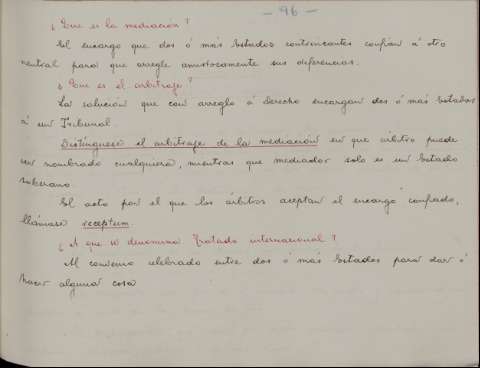 - 96 -
¿Que es la mediación?
El encargo que dos ó más Estados contrincantes confían á otro
neutral para que arregle amistocamente sus diferencias.
¿Que es el arbitraje?
La solución que con arreglo á derecho encargan dos ó más Estados
á un Tribunal.
Distínguese el arbitraje de la mediación en que árbitro puede
ser nombrado cualquiera, mientras que mediador solo es un Estado
soberano.
El acto por el que los árbitros aceptan el encargo confiado,
llámase receptum.
¿A que se denomina Tratado internacional?
Al convenio celebrado entre dos ó más Estados para dar ó
hacer alguna cosa